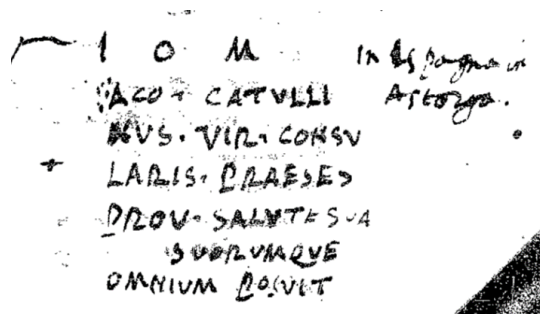 I O M
ACO · CATVLLI
NVS · VIR · CONSV
LARIS · PRAESES
PROV · SALVTE SVA
SVORVMQVE
OMNIUM POSVIT
In Espagna in
Astorga.